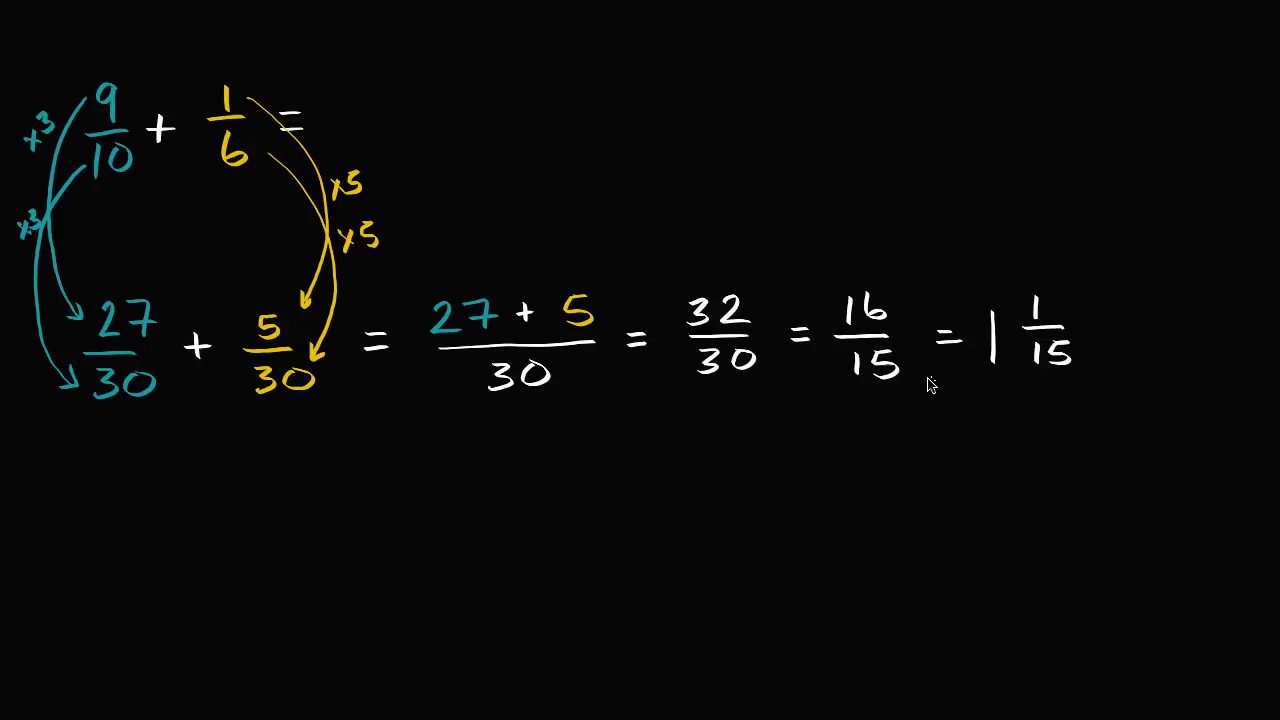 9/10 + 1/6 =
×3 ×5
×3 ×5
27/30 + 5/30 = 27 + 5/30 = 32/30 = 16/15 = 1 1/15